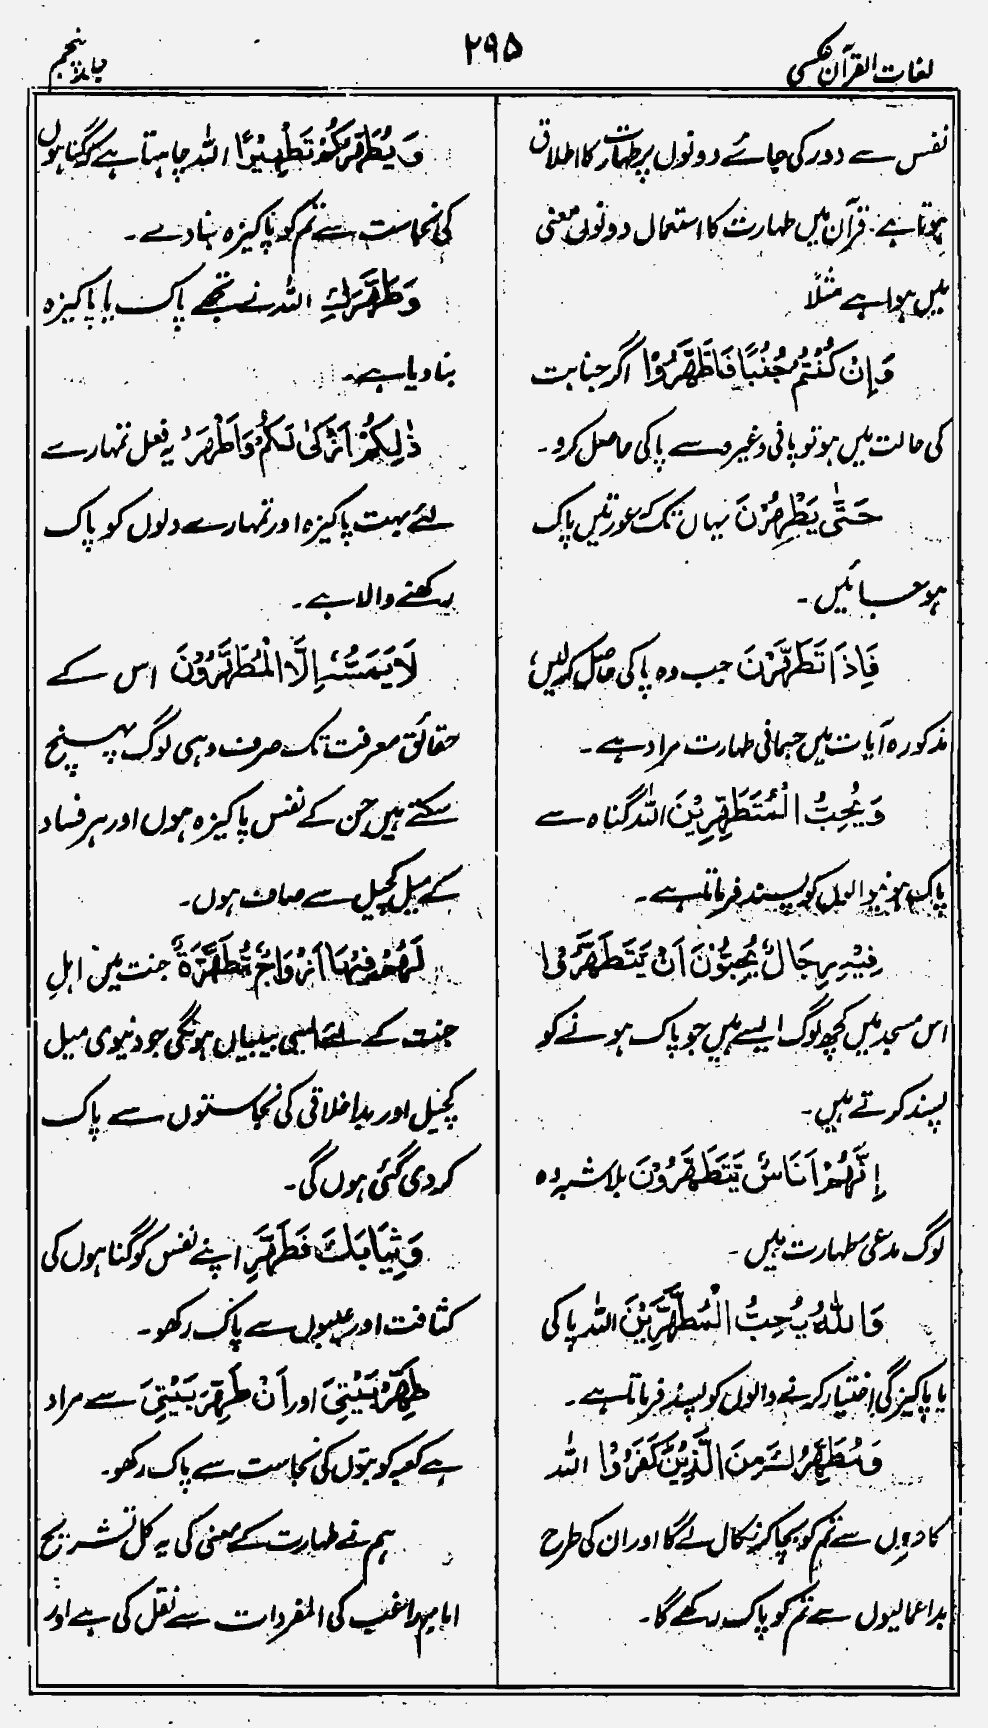 لغات القرآن عکسی
۲۹۵
جلد پنجم
نفس سے دور کی جائے دونوں پر طہارت کا اطلاق
ہوتا ہے۔ قرآن میں طہارت کا استعمال دونوں معنی
میں ہوا ہے مثلًا
وَإِنْ كُنْتُمْ جُنُبًا فَاطَّهَّرُوْا اگر جنابت
کی حالت میں ہو تو پانی وغیرہ سے پاکی حاصل کرو۔
حَتّٰى يَطْهُرْنَ یہاں تک کہ عورتیں پاک
ہو جائیں۔
فَاِذَا تَطَهَّرْنَ جب وہ پاکی حاصل کر لیں،
مذکورہ آیات میں جسمانی طہارت مراد ہے۔
وَيُحِبُّ الْمُتَطَهِّرِيْنَ اللہ گناہ سے
پاک ہونے والوں کو پسند فرماتا ہے۔
فِيْهِ رِجَالٌ يُحِبُّوْنَ اَنْ يَتَطَهَّرُوْا
اس مسجد میں کچھ لوگ ایسے ہیں جو پاک ہونے کو
پسند کرتے ہیں۔
اِنَّهُمْ اُنَاسٌ يَّتَطَهَّرُوْنَ بلا شبہ وہ
لوگ مدعی طہارت ہیں۔
وَاللّٰهُ يُحِبُّ الْمُطَّهِّرِيْنَ اللہ پاکی
یا پاکیزگی اختیار کرنے والوں کو پسند فرماتا ہے۔
وَمُطَهِّرُكَ مِنَ الَّذِيْنَ كَفَرُوْا اللہ
کافروں سے تم کو بچا کر نکال لے گا اور ان کی طرح
بد اعمالیوں سے تم کو پاک رکھے گا۔
وَيُطَهِّرَكُمْ تَطْهِيْرًا اللہ چاہتا ہے کہ گناہوں
کی نجاست سے تم کو پاکیزہ بنا دے۔
وَطَهَّرَكِ اللہ نے تجھے پاک یا پاکیزہ
بنا دیا ہے۔
ذٰلِكُمْ اَزْكٰى لَكُمْ وَاَطْهَرُ یہ فعل تمہارے
لئے بہت پاکیزہ اور تمہارے دلوں کو پاک
رکھنے والا ہے۔
لَا يَمَسُّهٗ اِلَّا الْمُطَهَّرُوْنَ اس کے
حقائق معرفت تک صرف وہی لوگ پہنچ
سکتے ہیں جن کے نفس پاکیزہ ہوں اور ہر فساد
کے میل کچیل سے صاف ہوں۔
لَهُمْ فِيْهَا اَزْوَاجٌ مُّطَهَّرَةٌ جنت میں اہلِ
جنت کے لئے ایسی بیبیاں ہونگی جو دنیوی میل
کچیل اور بد اخلاقی کی نجاستوں سے پاک
کر دی گئی ہوں گی۔
وَثِيَابَكَ فَطَهِّرْ اپنے نفس کو گناہوں کی
کثافت اور عیبوں سے پاک رکھو۔
طَهِّرْ بَيْتِيَ اور اَنْ طَهِّرَ بَيْتِيَ سے مراد
ہے کعبہ کو بتوں کی نجاست سے پاک رکھو۔
ہم نے طہارت کے معنی کی یہ کل تشریح
امام راغب کی المفردات سے نقل کی ہے اور